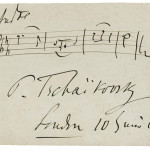 P. Tschaïkovsky
London 10 Juin